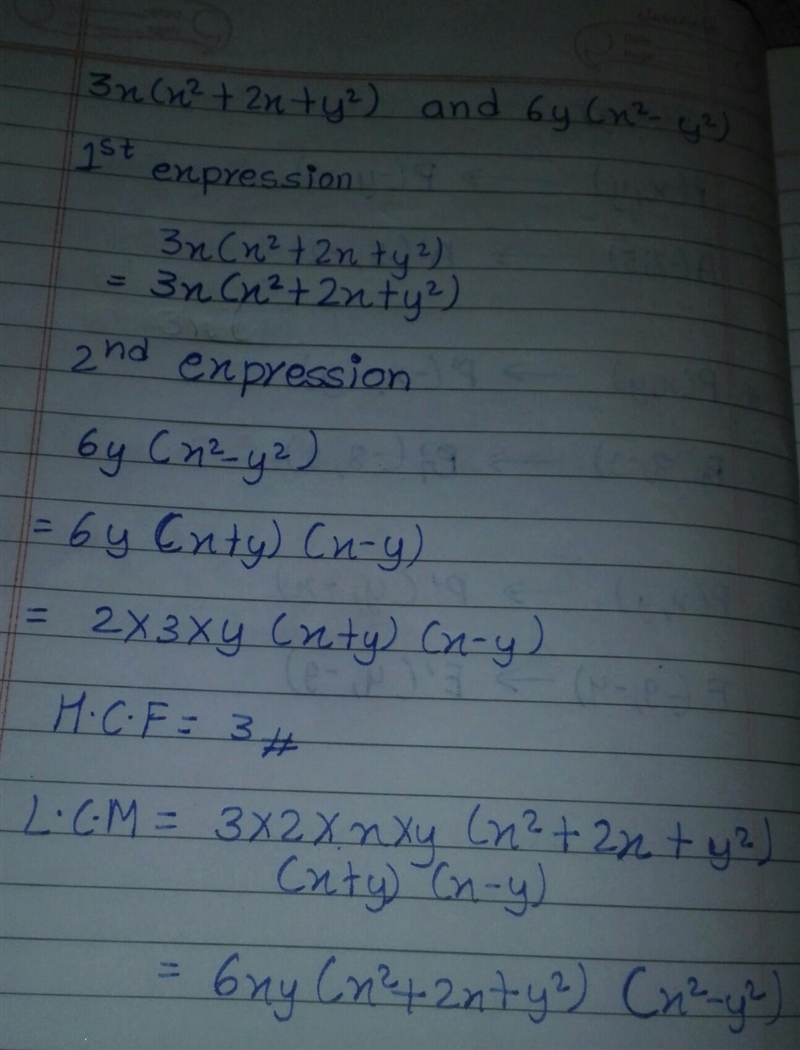 3x(x²+2x+y²) and 6y(x²-y²)
1st expression
3x(x²+2x+y²)
= 3x(x²+2x+y²)
2nd expression
6y(x²-y²)
= 6y (x+y) (x-y)
= 2×3×y (x+y) (x-y)
H.C.F = 3 #
L.C.M = 3×2×x×y (x²+2x+y²)
(x+y) (x-y)
= 6xy (x²+2x+y²) (x²-y²)